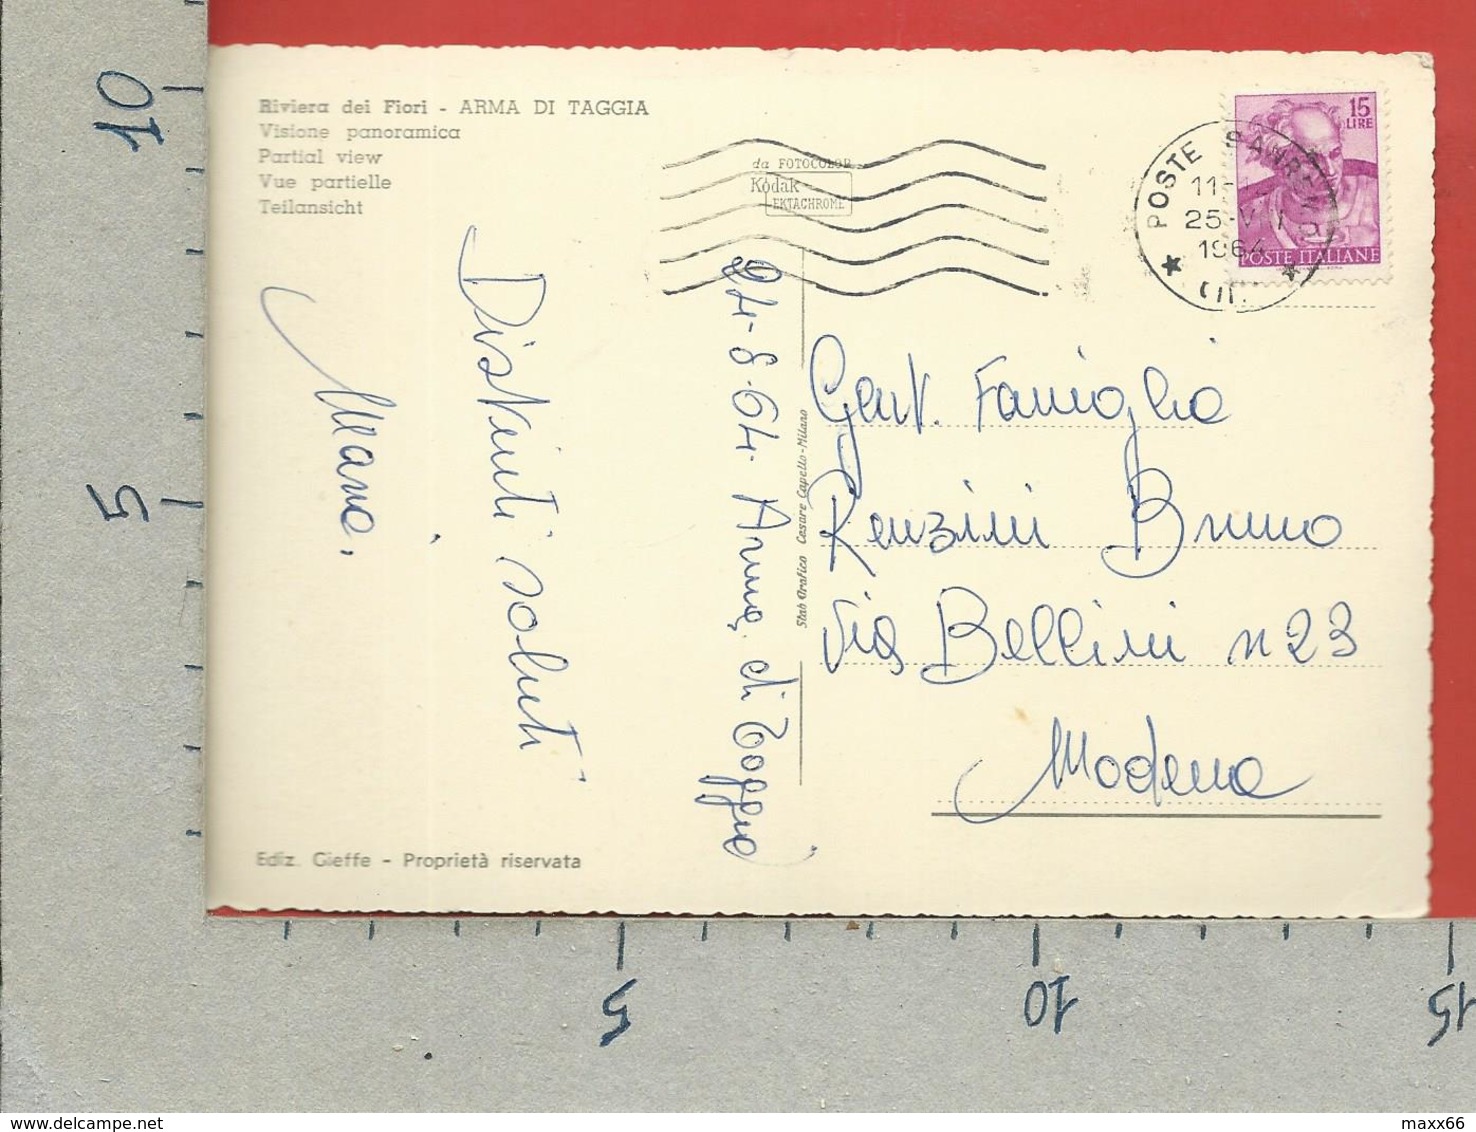 Riviera dei Fiori - ARMA DI TAGGIA
Visione panoramica
Partial view
Vue partielle
Teilansicht
da FOTOCOLOR
Kodak
EKTACHROME
15
LIRE
POSTE ITALIANE
POSTE SANREMO
25-VIII
1964
24-8-64. Arma di Taggia
Distinti saluti
Gent. Famiglia
Renzini Bruno
Via Bellini n 23
Modena
Stab Grafico Cesare Capello - Milano
Ediz. Gieffe - Proprietà riservata
10
5
5
10
15
maxx66
www.delcampe.net